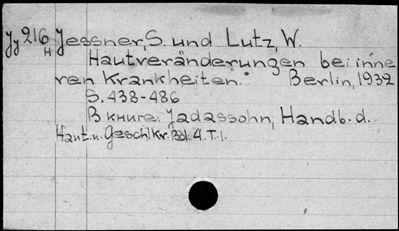 Jy 216 Jessner, S. und Lutz, W.
H
Hautveränderungen bei inne
ren Krankheiten. Berlin, 1932
S. 438-486
В книге: Jadassohn, Handb. d.
Haut. u. Geschl. Kr. Bd. 4. T. 1.